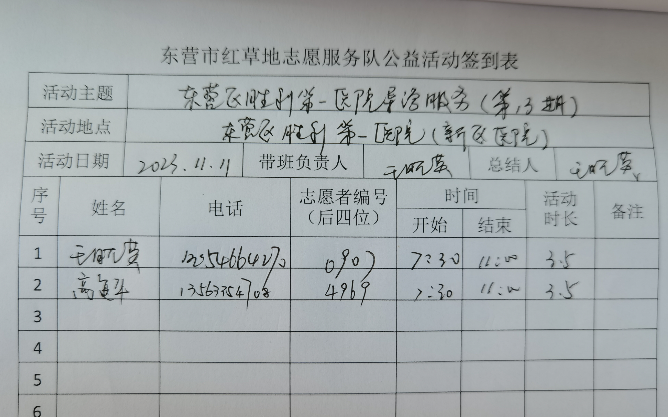 东营市红草地志愿服务队公益活动签到表
活动主题 东营区胜利第一医院导诊服务（第13期）
活动地点 东营区胜利第一医院（新区医院）
活动日期 2023.11.11 带班负责人 总结人
序号 姓名 电话 志愿者编号（后四位） 时间 活动时长 备注
开始 结束
1 0907 7:30 11:00 3.5
2 4969 7:30 11:00 3.5
3
4
5
6